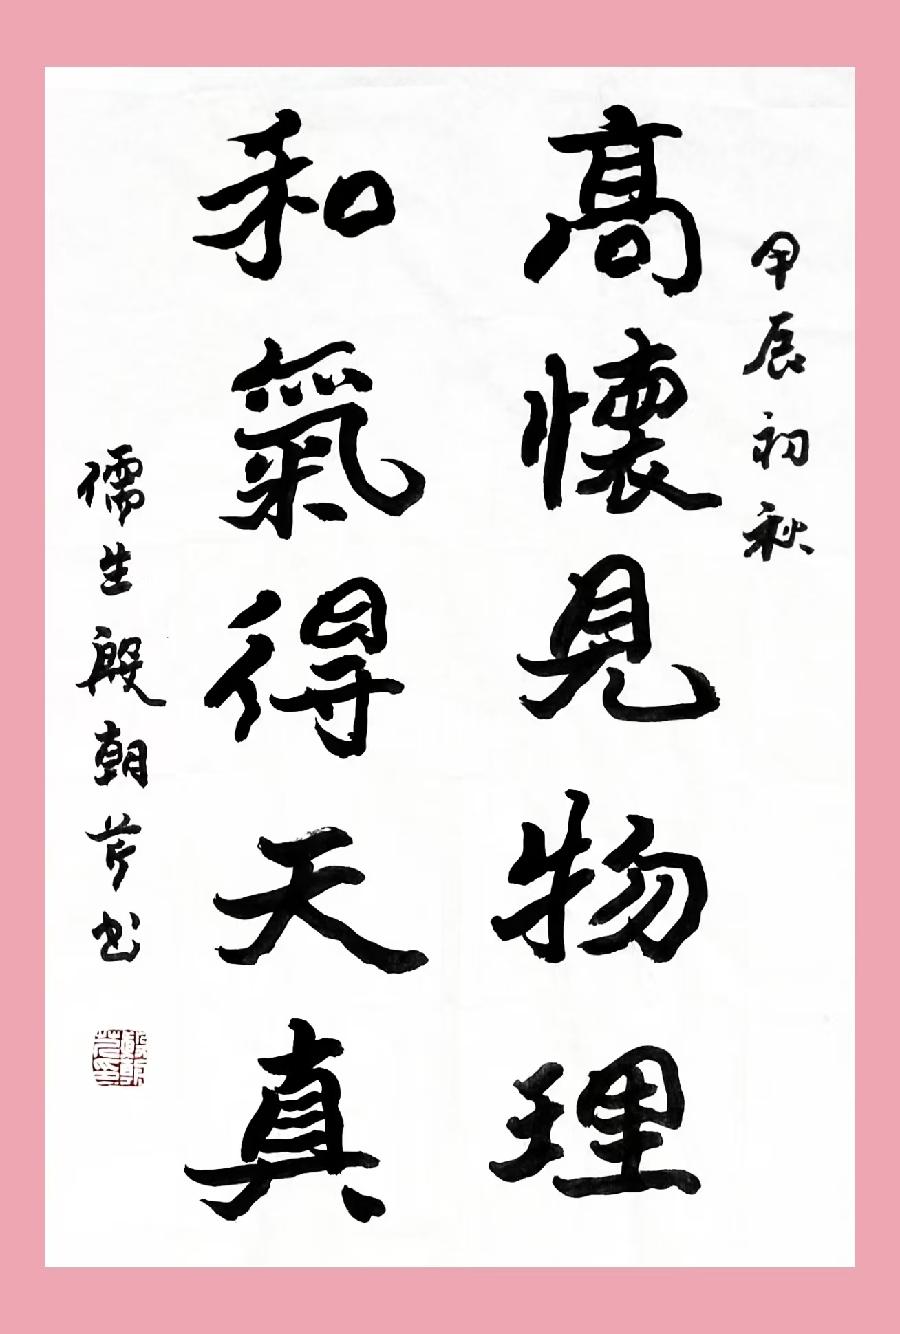 甲辰初秋
髙懷見物理
和氣得天真
儒生殷朝芹书